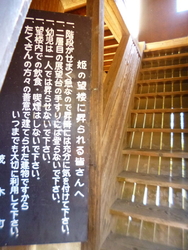 姫の望楼に昇られる皆さんへ
一、階段がせまく急なので昇降には充分に気を付けて下さい。
一、二層目の展望台の手すりに登らないで下さい。
一、幼児は一人では昇らせないで下さい。
一、望楼内での飲食・喫煙はしないで下さい。
たくさんの方々の善意で建てられた建物ですから
いつまでも大切に利用して下さい。